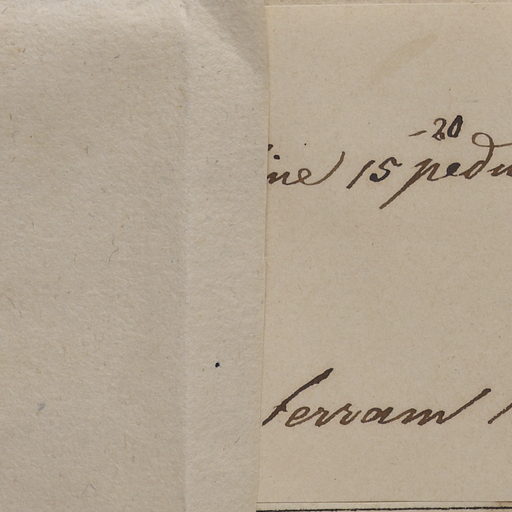 -20
ine 15 pedu
terram